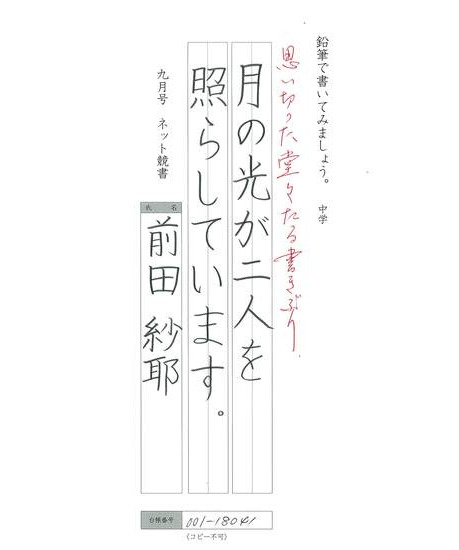 鉛筆で書いてみましょう。 中学
思い切った、堂々たる書きぶり。
月の光が二人を
照らしています。
九月号 ネット競書
氏 名
前田 紗耶
台帳番号 001-18041
(コピー不可)